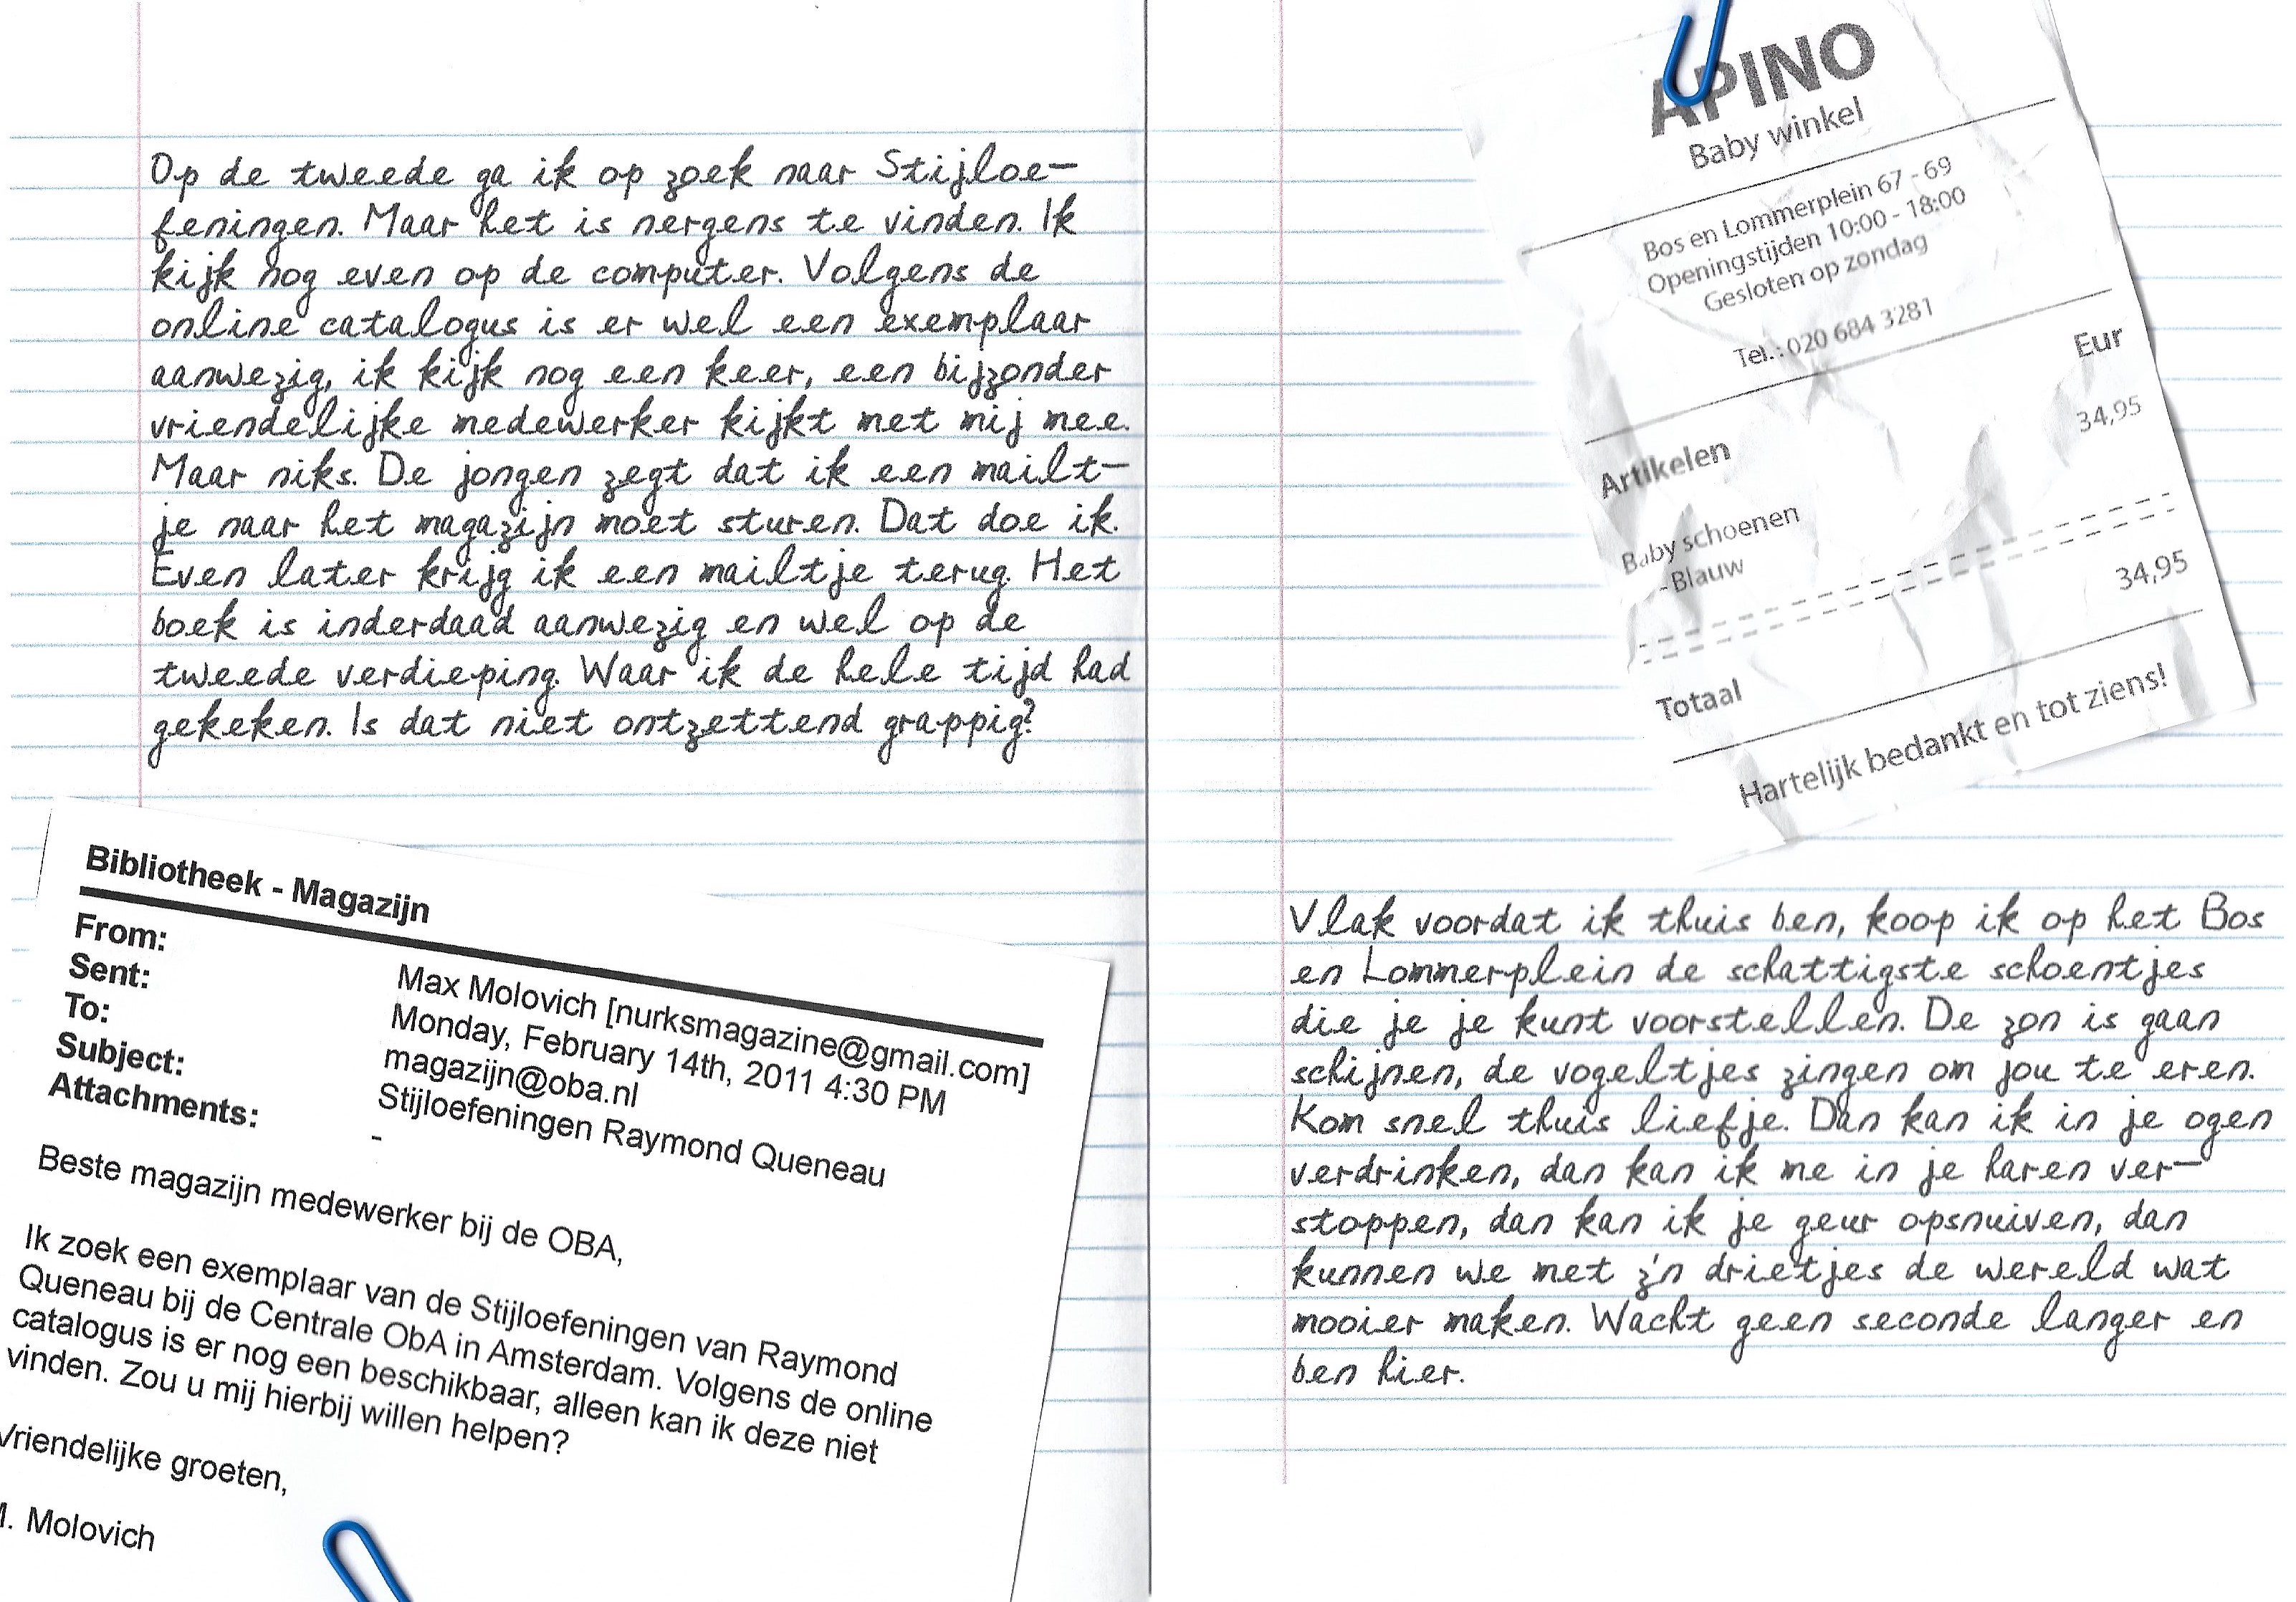 Op de tweede ga ik op zoek naar Stijloe-
feningen. Maar het is nergens te vinden. Ik
kijk nog even op de computer. Volgens de
online catalogus is er wel een exemplaar
aanwezig, ik kijk nog een keer, een bijzonder
vriendelijke medewerker kijkt met mij mee.
Maar niks. De jongen zegt dat ik een mailt-
je naar het magazijn moet sturen. Dat doe ik.
Even later krijg ik een mailtje terug. Het
boek is inderdaad aanwezig en wel op de
tweede verdieping. Waar ik de hele tijd had
gekeken. Is dat niet ontzettend grappig?
Bibliotheek - Magazijn
From: Max Molovich [nurksmagazine@gmail.com]
Sent: Monday, February 14th, 2011 4:30 PM
To: magazijn@oba.nl
Subject: Stijloefeningen Raymond Queneau
Attachments: -
Beste magazijn medewerker bij de OBA,
Ik zoek een exemplaar van de Stijloefeningen van Raymond
Queneau bij de Centrale ObA in Amsterdam. Volgens de online
catalogus is er nog een beschikbaar, alleen kan ik deze niet
vinden. Zou u mij hierbij willen helpen?
Vriendelijke groeten,
M. Molovich
APINO
Baby winkel
Bos en Lommerplein 67 - 69
Openingstijden 10:00 - 18:00
Gesloten op zondag
Tel.: 020 684 3281
Eur
Artikelen 34,95
Baby schoenen
- Blauw
34,95
Totaal
Hartelijk bedankt en tot ziens!
Vlak voordat ik thuis ben, koop ik op het Bos
en Lommerplein de schattigste schoentjes
die je je kunt voorstellen. De zon is gaan
schijnen, de vogeltjes zingen om jou te eren.
Kom snel thuis liefje. Dan kan ik in je ogen
verdrinken, dan kan ik me in je haren ver-
stoppen, dan kan ik je geur opsnuiven, dan
kunnen we met z'n drietjes de wereld wat
mooier maken. Wacht geen seconde langer en
ben hier.